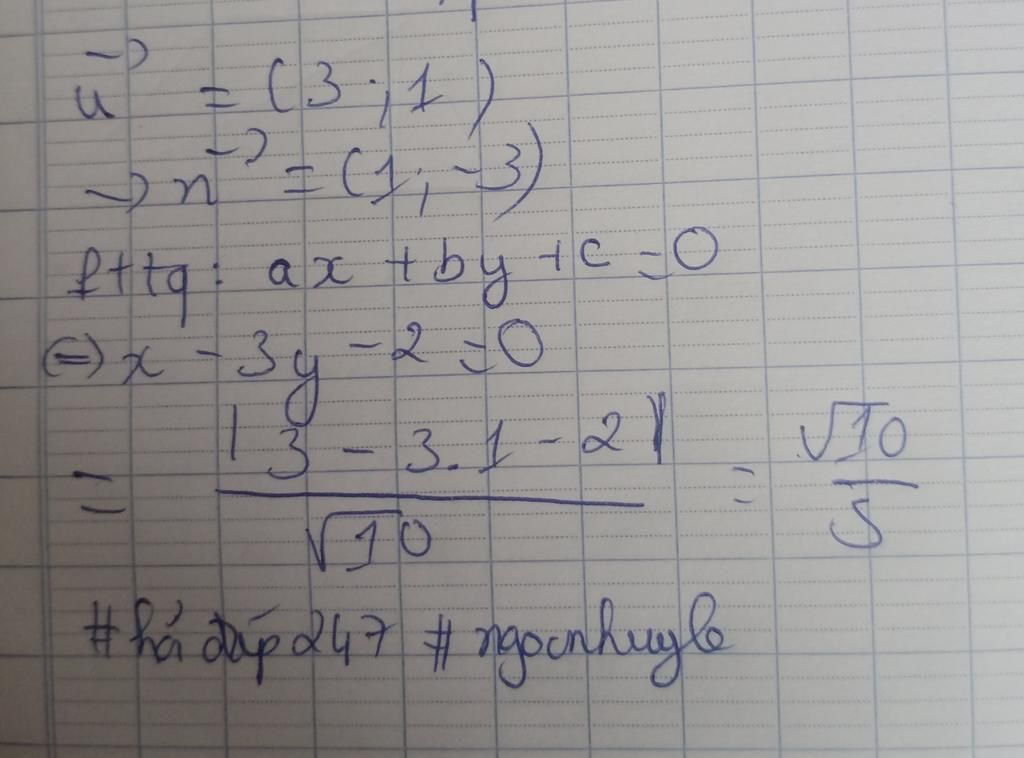 →u = (3 ; 1)
→ →n = (1 ; -3)
pttq: ax + by + c = 0
⇔ x - 3y - 2 = 0
= |3 - 3.1 - 2| / √10 = √10 / 5
#hỏi đáp 247 #ngocnhuyle